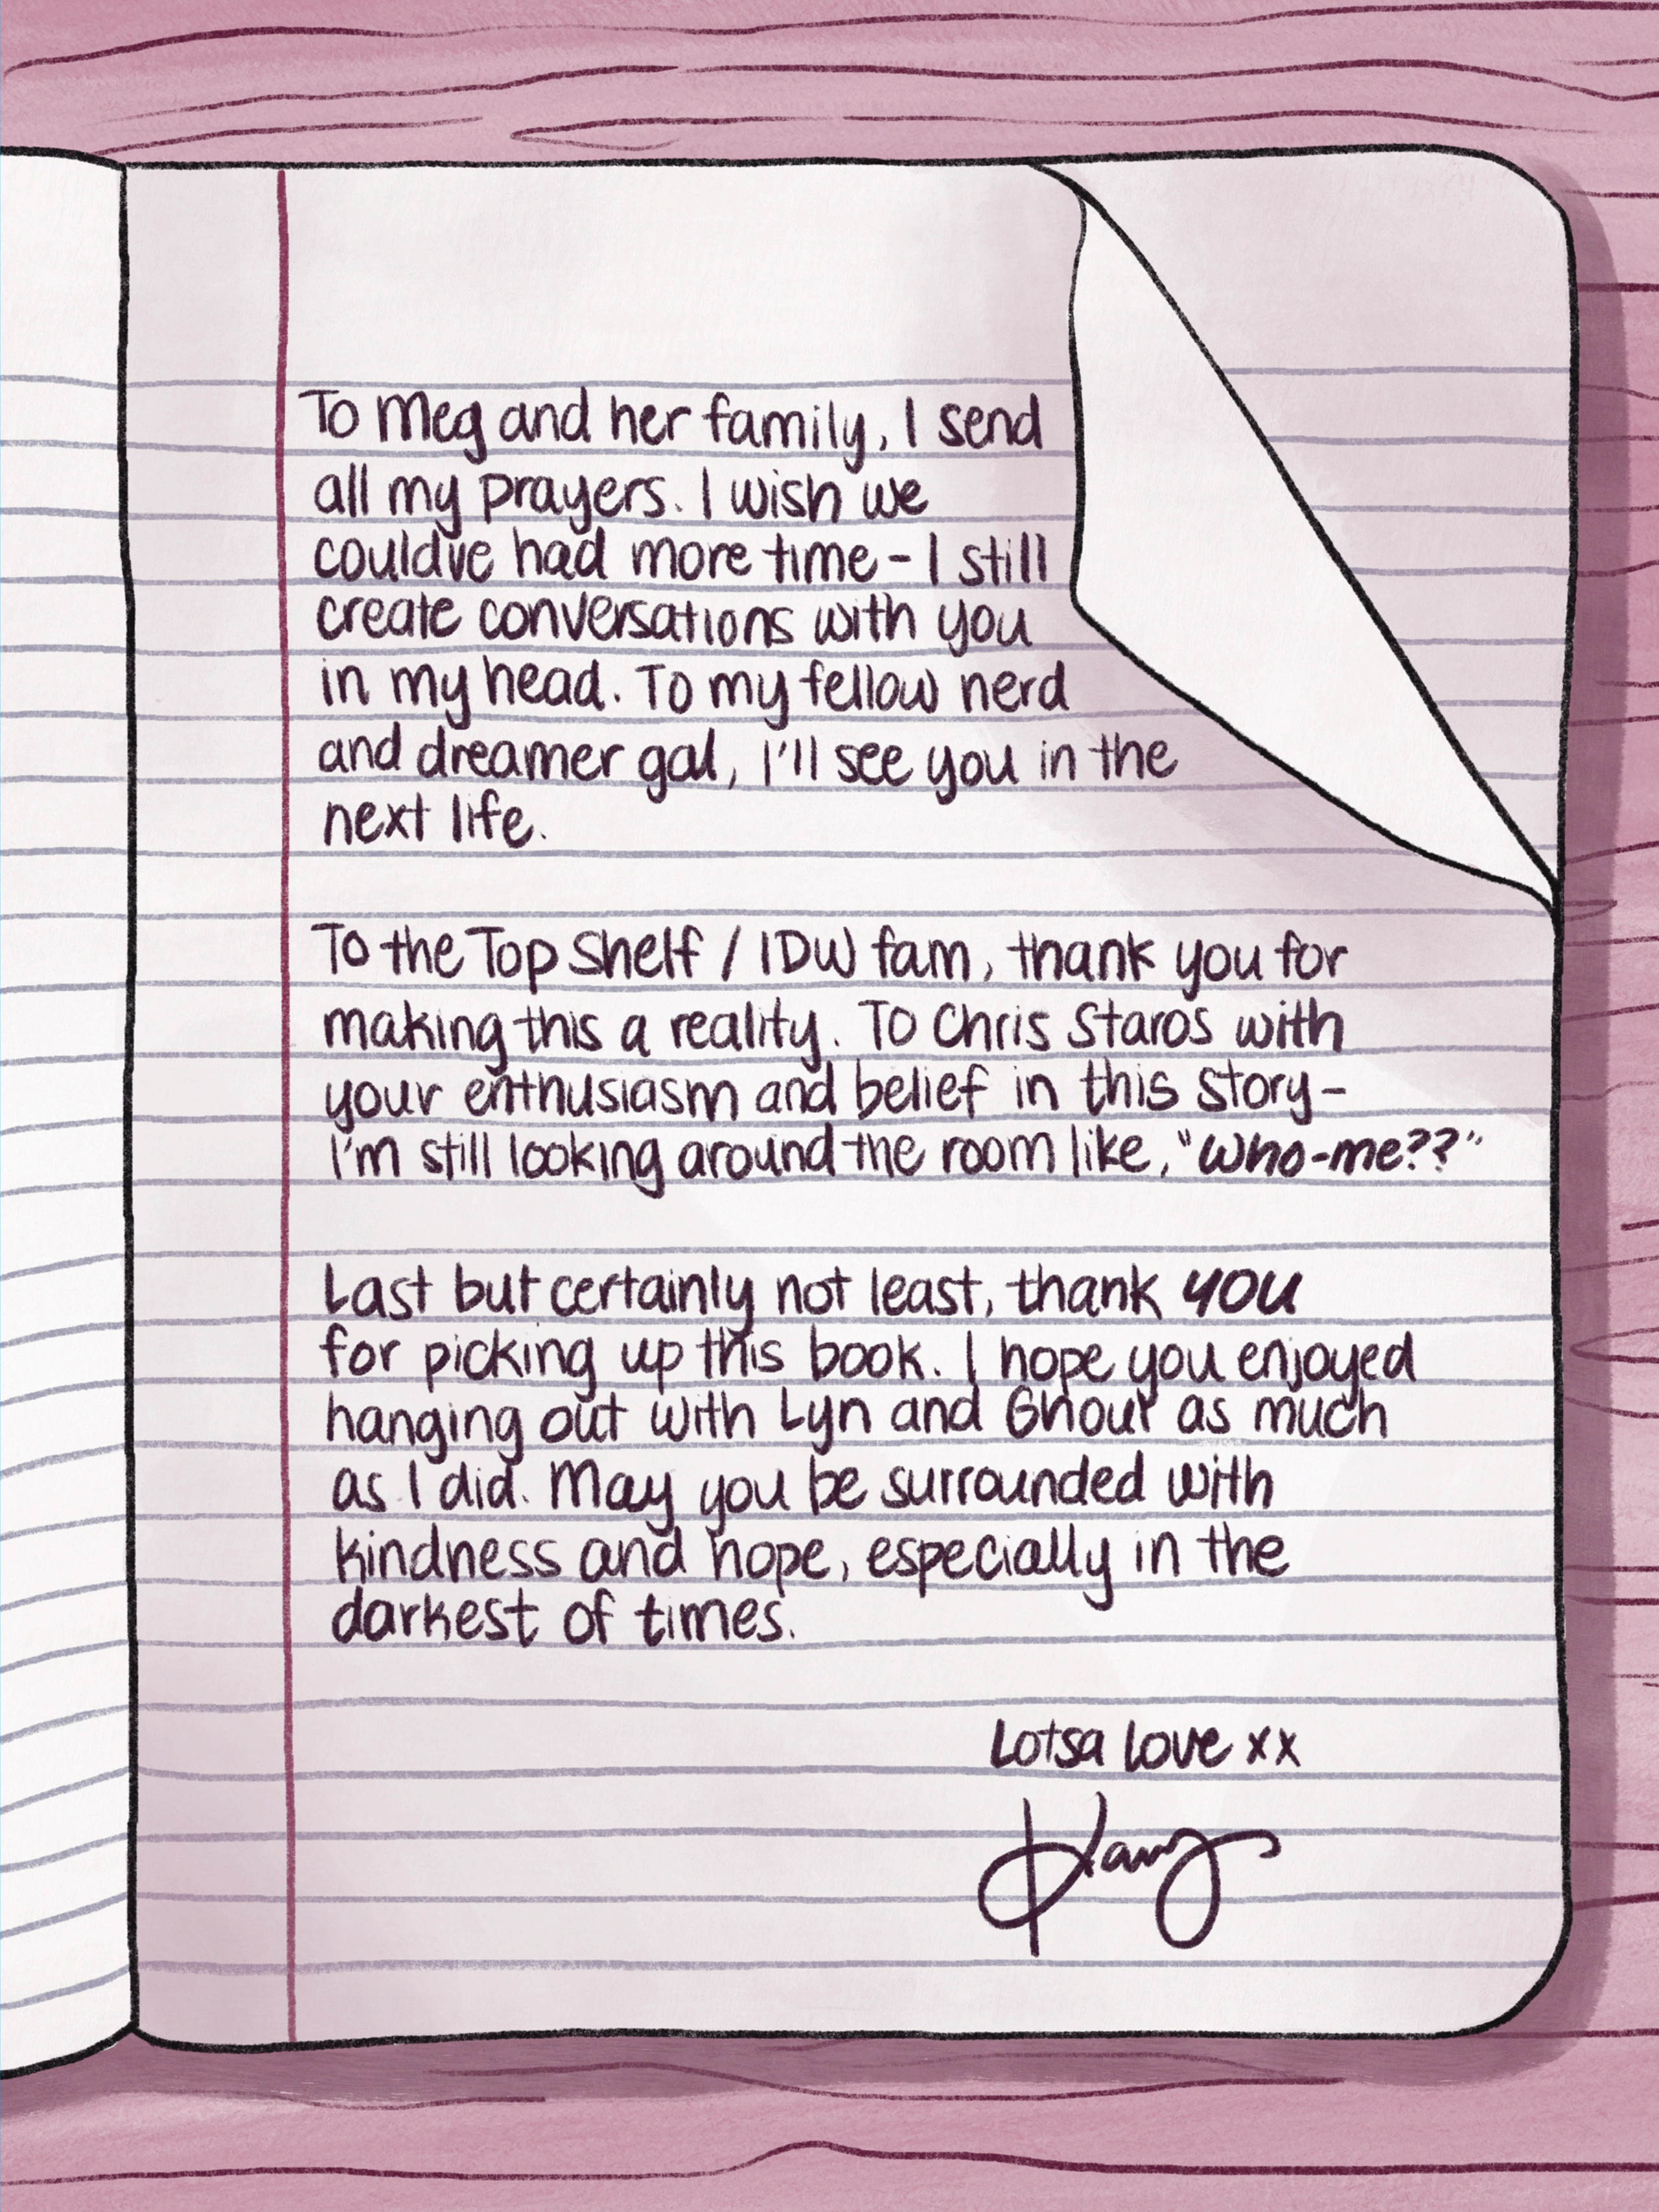 To Meg and her family, I send
all my prayers. I wish we
could've had more time - I still
create conversations with you
in my head. To my fellow nerd
and dreamer gal, I'll see you in the
next life.
To the Top Shelf / IDW fam, thank you for
making this a reality. To Chris Staros with
your enthusiasm and belief in this story -
I'm still looking around the room like, "Who-me??"
Last but certainly not least, thank YOU
for picking up this book. I hope you enjoyed
hanging out with Lyn and Ghour as much
as I did. May you be surrounded with
kindness and hope, especially in the
darkest of times.
Lotsa love xx